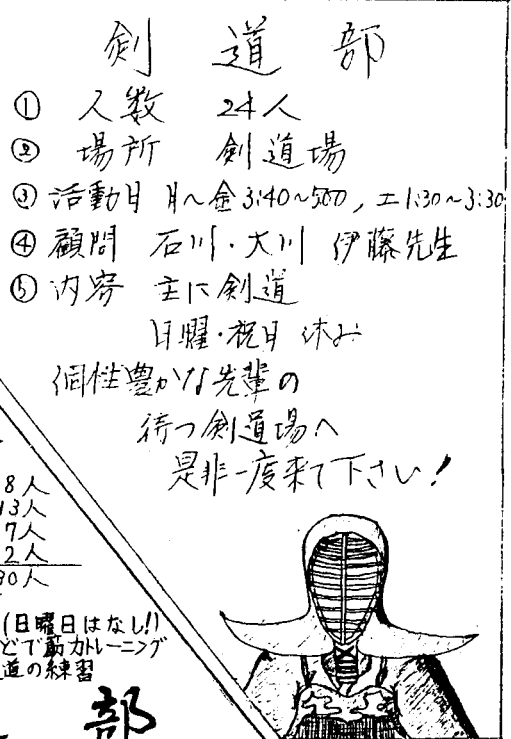 剣道部
① 人数 24人
② 場所 剣道場
③ 活動日 月〜金 3:40〜5:00, 土 1:30〜3:30
④ 顧問 石川・大川 伊藤先生
⑤ 内容 主に剣道
日曜・祝日 休み
個性豊かな先輩の
待つ剣道場へ
是非一度来て下さい!
8人
13人
7人
2人
30人
(日曜日はなし!)
どで筋力トレーニング
道の練習
部